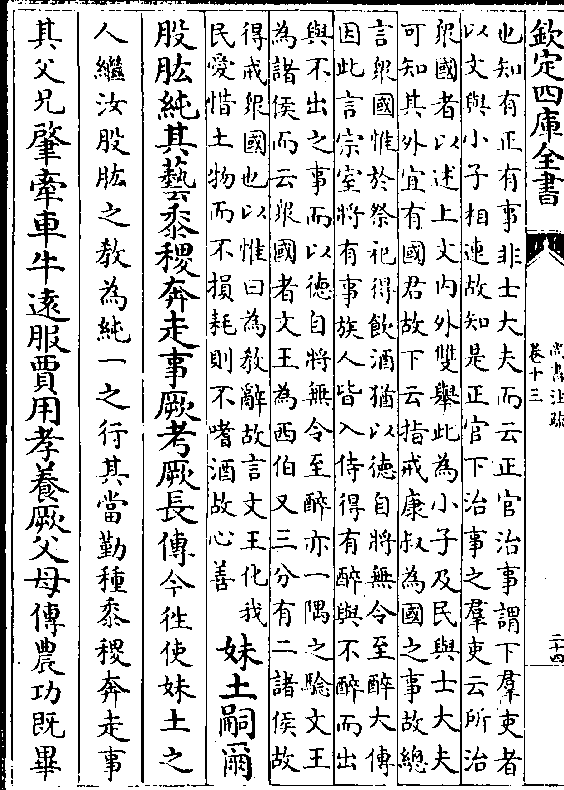 欽定四庫全書
尚書注疏
卷十三
二十四
也知有正有事非士大夫而云正官治事謂下羣吏者
以文與小子相連故知是正官下治事之羣吏云所治
衆國者以述上文内外雙舉此為小子及民與士大夫
可知其外宜有國君故下云指戒康叔為國之事故緫
言衆國惟於祭祀得飲酒猶以德自將無令至醉大傳
因此言宗室將有事族人皆入侍得有醉與不醉而出
與不出之事而以德自將無令至醉亦一隅之驗文王
為諸侯而云衆國者文王為西伯又三分有二諸侯故
得戒衆國也以惟曰為教辭故言文王化我
民愛惜土物而不損耗則不嗜酒故心善
妹土嗣爾
股肱純其藝黍稷奔走事厥考厥長傳今徃使妹土之
人繼汝股肱之教為純一之行其當勤種黍稷奔走事
其父兄肇牽車牛遠服賈用孝養厥父母傳農功既畢